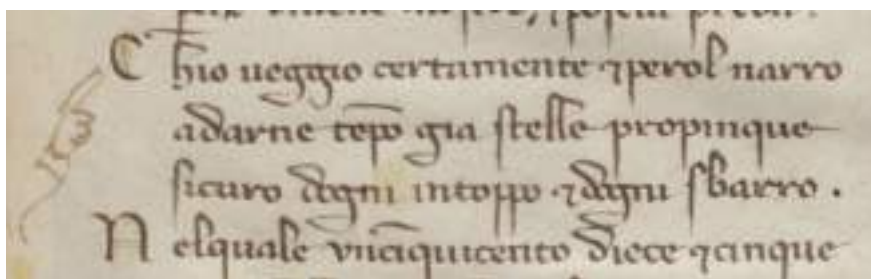 C hio ueggio certamente ⁊perol narro
adarne tēpo gia stelle propinque
sicuro dogni intoppo ⁊dogni sbarro .
N elquale vncīquicento diece ⁊cinque